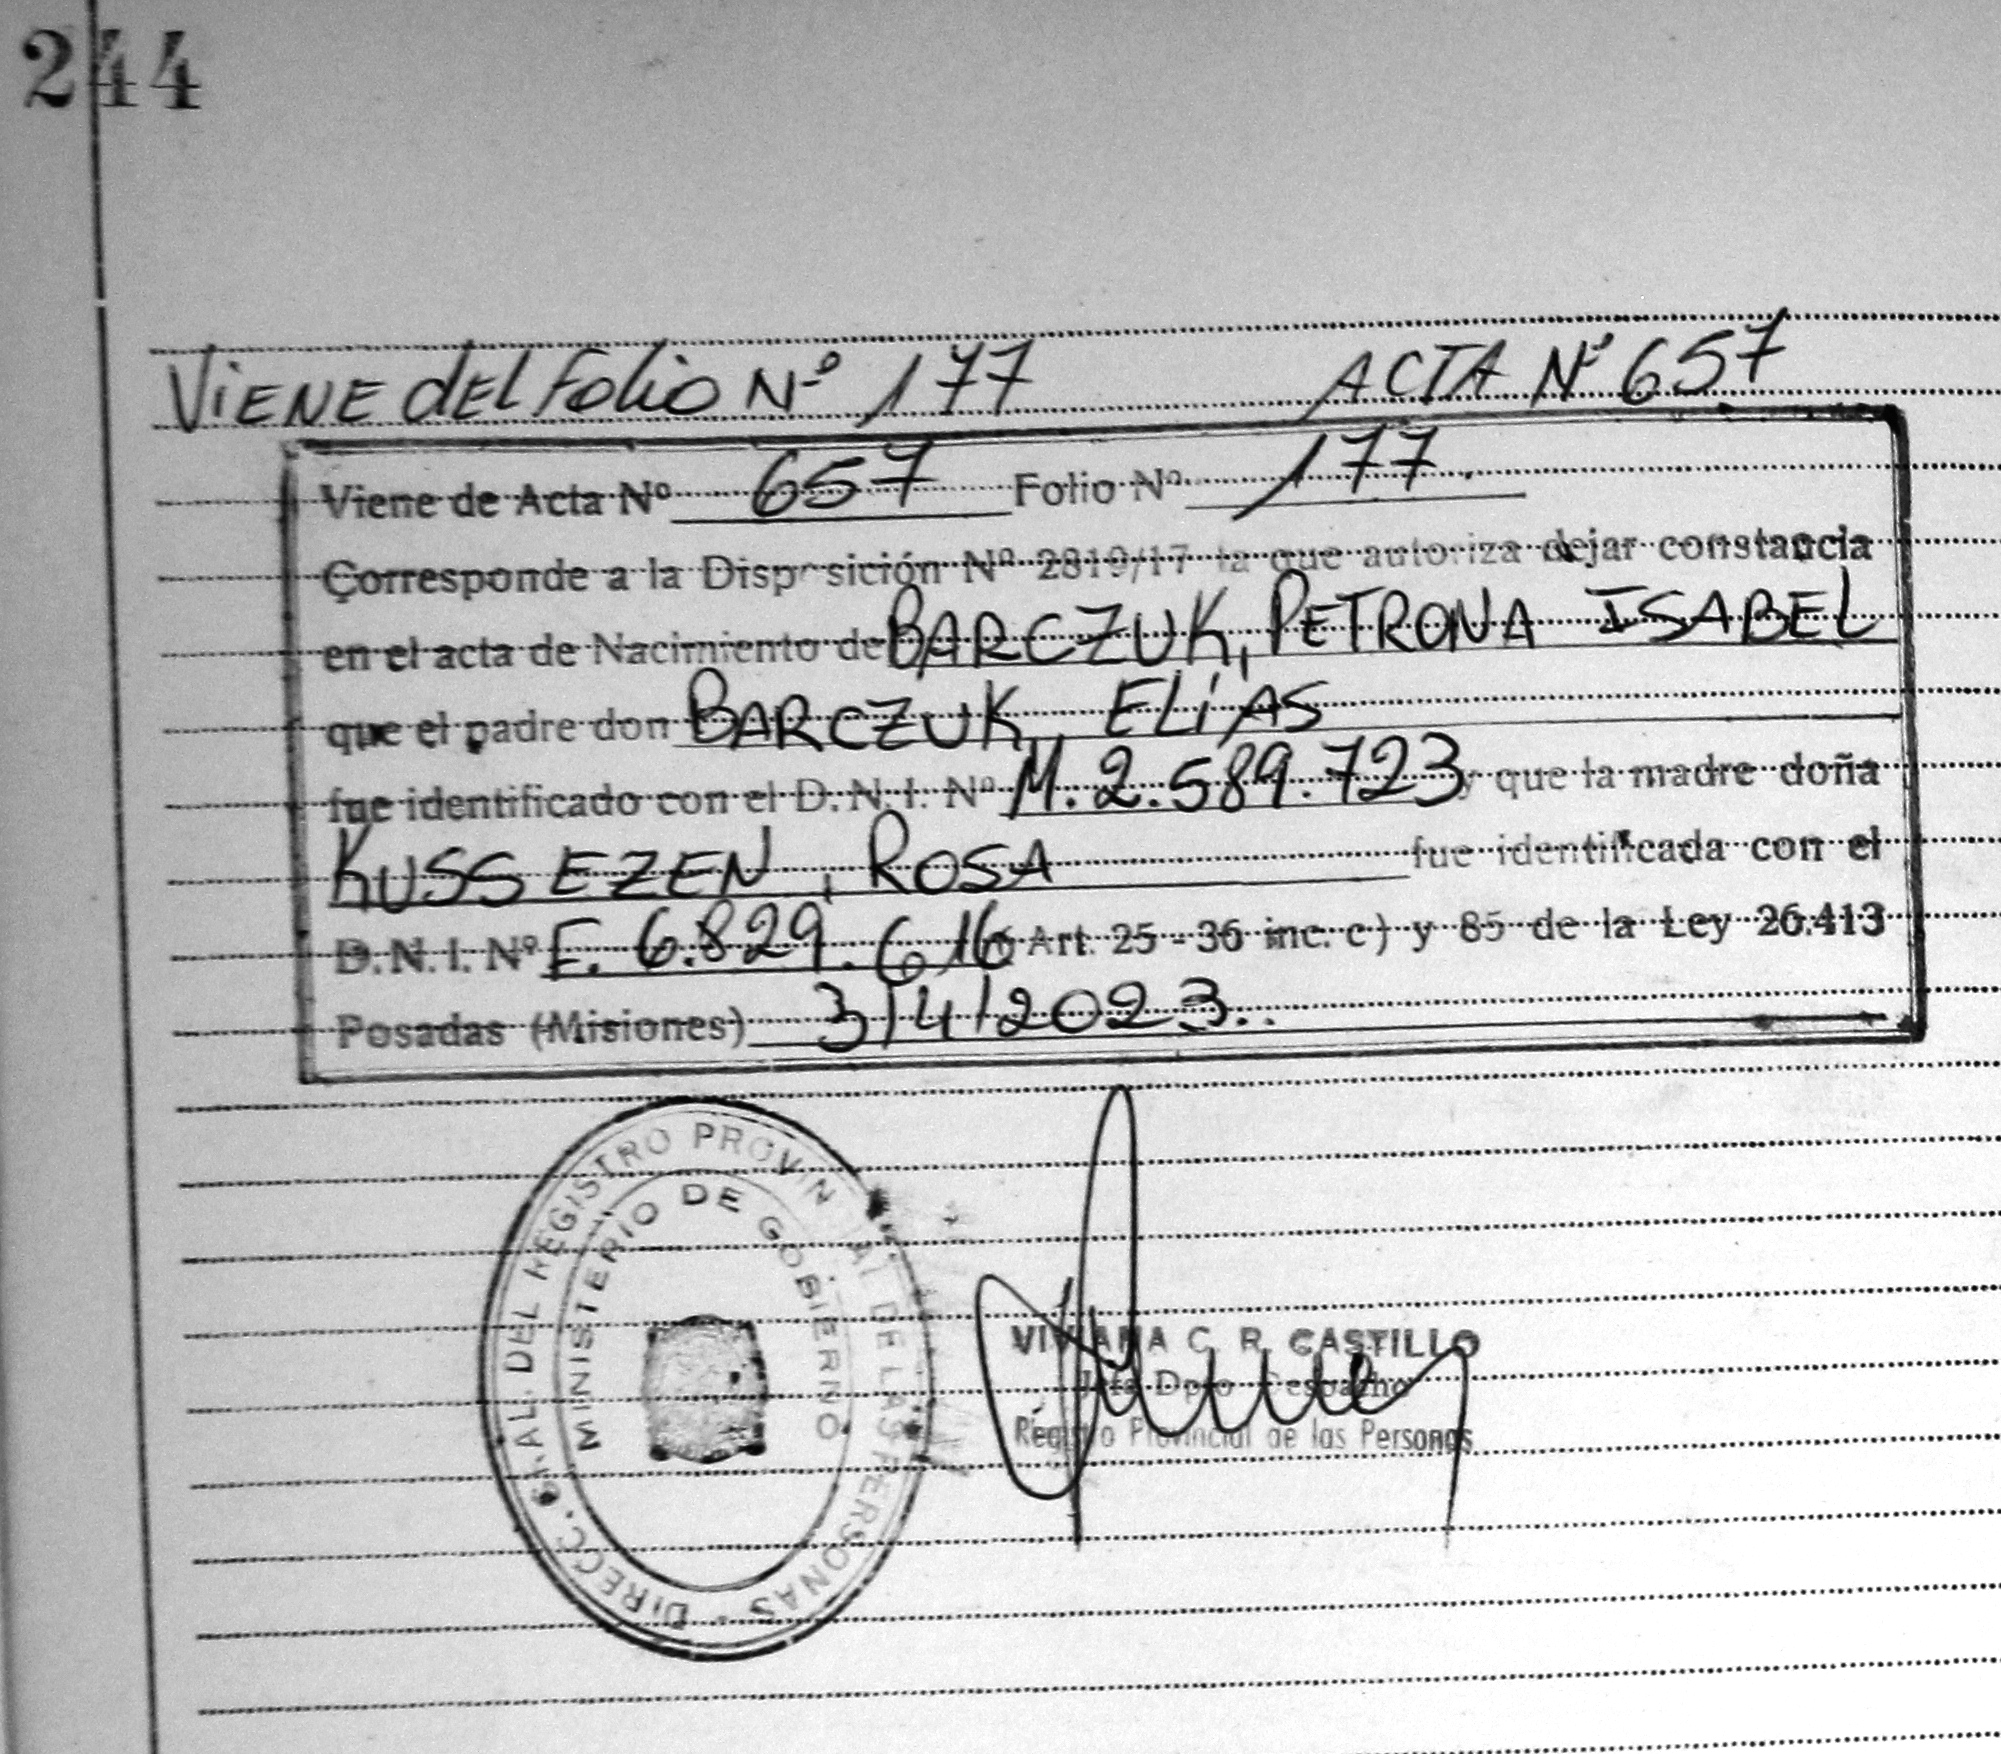 244
ViENE dEL FoLio Nº 177 ACTA Nº 657
Viene de Acta Nº 657 Folio Nº 177
Corresponde a la Disposición Nº 2819/17 la que autoriza dejar constancia
en el acta de Nacimiento de BARCZUK, PETRONA ISABEL
que el padre don BARCZUK, ELíAS
fue identificado con el D.N.I. Nº M.2.589.723 y que la madre doña
KUSSEZEN, ROSA fue identificada con el
D.N.I. Nº F. 6.829.616 Art. 25 - 36 inc. c) y 85 de la Ley 26.413
Posadas (Misiones) 3/4/2023.
DIRECC. GRAL. DEL REGISTRO PROVINCIAL DE LAS PERSONAS -
MINISTERIO DE GOBIERNO
VIVIANA C. R. CASTILLO
Jefa Dpto Despacho
Registro Provincial de las Personas